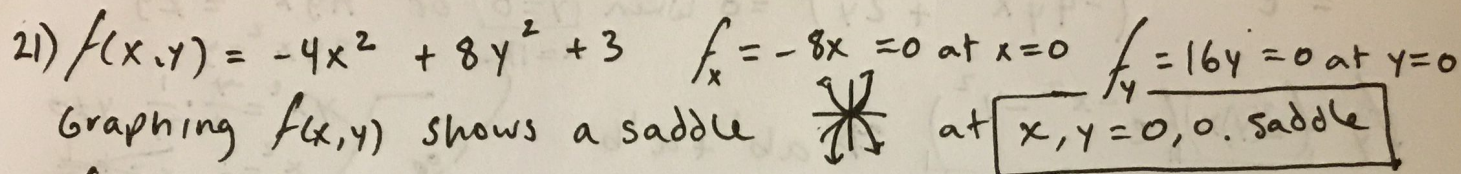 21) f(x,y) = -4x² + 8y² + 3 fₓ = -8x = 0 at x=0 f_y = 16y = 0 at y=0
Graphing f(x,y) shows a saddle at x, y = 0, 0. saddle